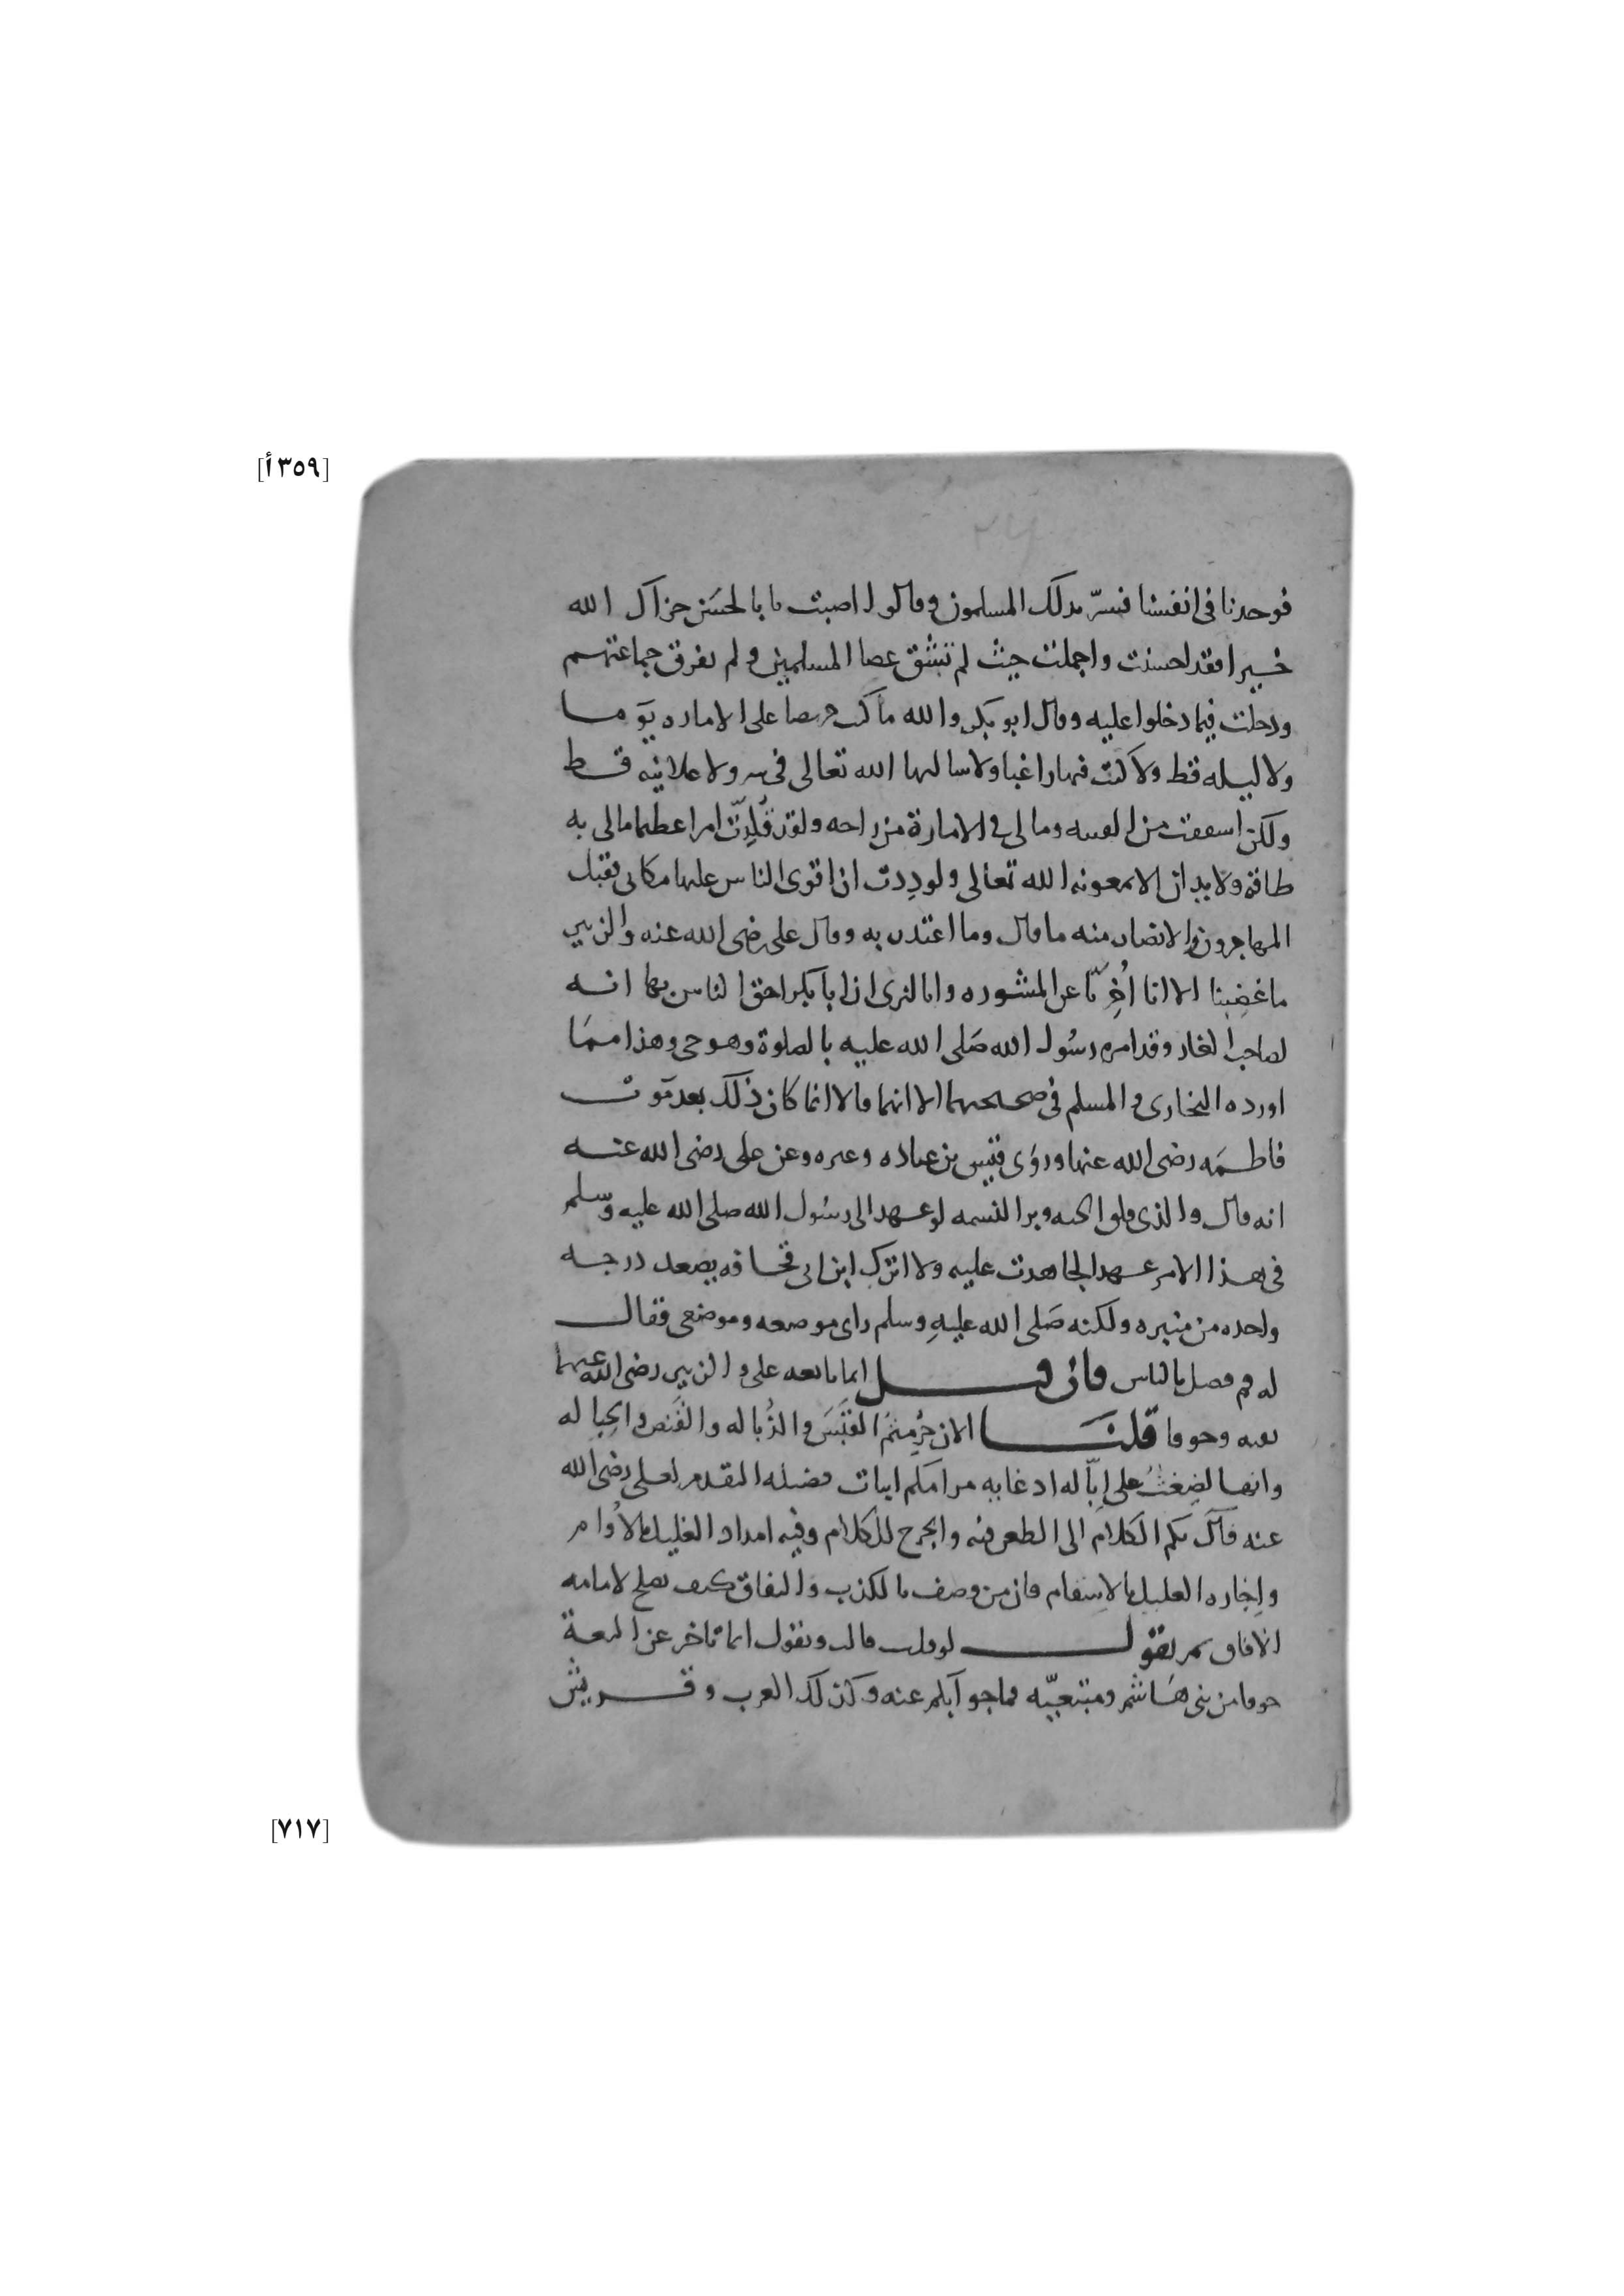 [٣٥٩أ]
فوجدنا في انفسنا فسرّ بذلك المسلمون وقالوا اصبت يا با الحسَن جزاك الله
خيرا فقد احسنت واجملت حيث لم تشق عصا المسلمين ولم تفرق جماعتهم
ودخلت فيما دخلوا عليه وقال ابو بكر والله ما كنت حريصا على الاماره يوما
ولا ليله قط ولا كنت فيها راغبا ولا سالتها الله تعالى في سر ولا علانيه قط
ولكن اشفقت من الفتنه وما لي في الامارة من راحه ولقد قُلِّدتُ امرا عظيما مالي به
طاقه ولا يدان الا بمعونه الله تعالى ولودِدت ان اقوى الناس عليها مكاني فقبل
المهاجرون والانصار منه ما قال وما اعتذر به وقال علي رضي الله عنه والزبير
ما غضِبنا الا انا أُخِّرنا عن المشوره وانا لنرى ان ابا بكر احق الناس بها انه
لصاحب الغار وقد امره رسُول الله صَلى الله عليه بالصلوة وهو حي وهذا ممَا
اورده البخاري والمسلم في صحيحيهما الا انهما قالا انما كان ذلك بعد مَوت
فاطمَه رضي الله عنها وروَى قيس بن عباده وغيره وعن علي رضي الله عنه
انه قال والذي فلق الحبه وبرا النسمه لو عهد الي رسُول الله صلى الله عليه وسلم
في هذا الامر عهدا لجاهدت عليه ولا اترك ابن ابي قحافه يصعد درجه
واحده من منبره ولكنه صَلى الله عليهِ وسلم راى موضعه وموضعي فقال
له قم فصل بالناس فان قيل انما بايعه علي والزبير رضي الله عنهما
تقيه وخوفا قلنَا الان حُرِمتمُ القبَسَ والذُباله والقَنص والحِباله
وانها لضِغثُ على اِبّاله اذ غايه مرامكم اثبات فضيله التقدم لعلي رضي الله
عنه فآل بكم الكلام الى الطعن فيه والجرح للكلام وفيه امداد الغليل بالاُوام
واِجازه العليل بالاسقام فان من وصف بالكذب والنفاق كيف يصلح لامامه
الافاق ثم يقول لو قلب قالب ونقول انما تاخر عن البيعة
خوفا من بني هَاشم ومتبعيّه فما جوابكم عنه وكذلك العرب وقريش
[٧١٧]